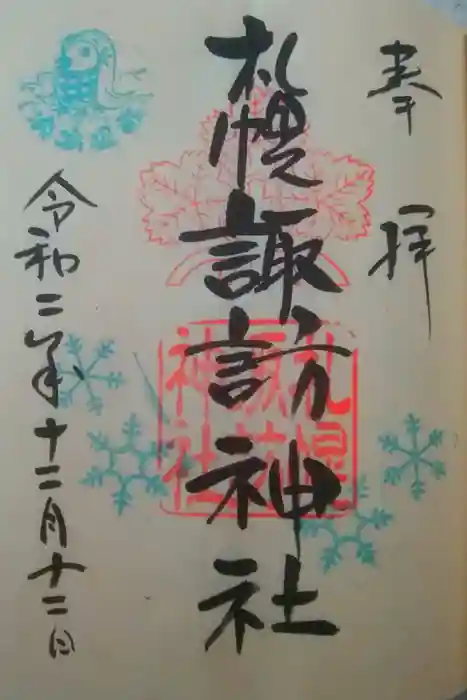 奉拝
札幌諏訪神社
札幌諏訪神社
令和二年十二月十二日